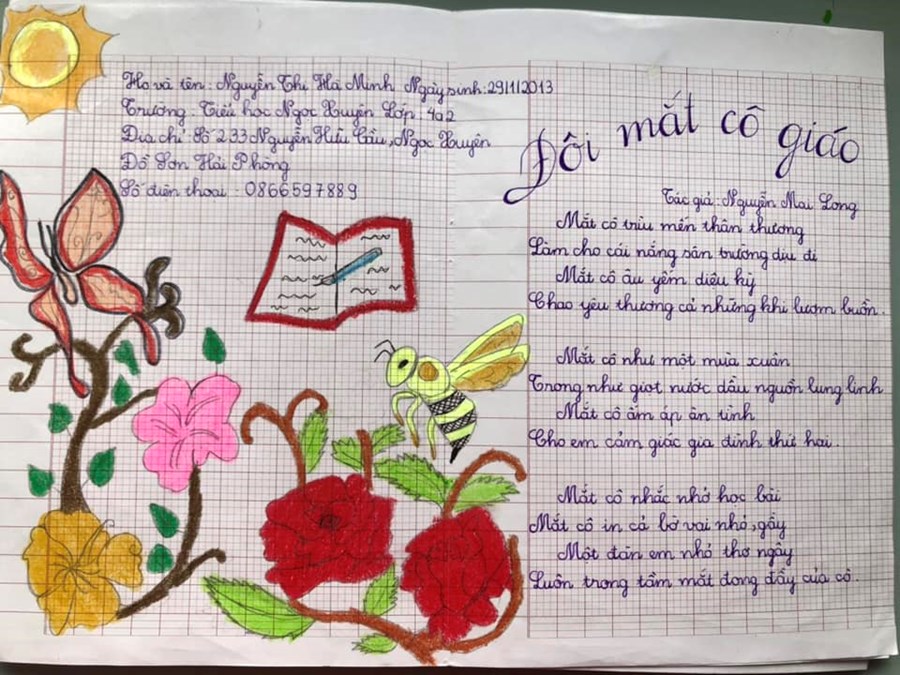 Họ và tên: Nguyễn Thị Hà Minh Ngày sinh: 29/1/2013
Trường: Tiểu học Ngọc Xuyên Lớp: 4a2
Địa chỉ Số 233 Nguyễn Hữu Cầu, Ngọc Xuyên
Đồ Sơn Hải Phòng
Số điện thoại: 0866597889
Đôi mắt cô giáo
Tác giả: Nguyễn Mai Long
Mắt cô trìu mến thân thương
Làm cho cái nắng sân trường dịu đi
Mắt cô âu yếm diệu kỳ
Chao yêu thương cả những khi lượm buồn.
Mắt cô như một mùa xuân
Trong như giọt nước đầu nguồn lung linh
Mắt cô ấm áp ân tình
Cho em cảm giác gia đình thứ hai.
Mắt cô nhắc nhở học bài
Mắt cô in cả bờ vai nhỏ, gầy
Một đàn em nhỏ thơ ngây
Luôn trong tầm mắt đong đầy của cô.